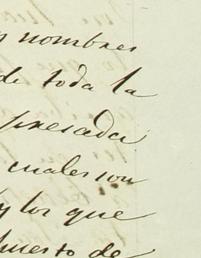 nombres
de toda la
presada
cuales son
y los que
puesto de